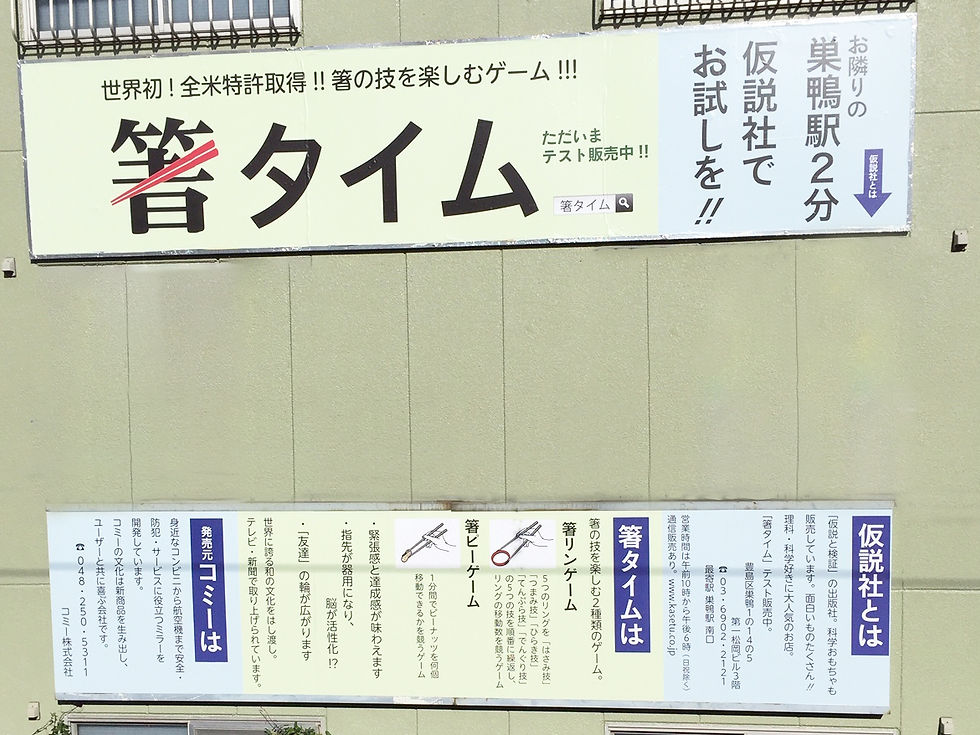 世界初！全米特許取得!!箸の技を楽しむゲーム!!!
箸タイム
ただいま
テスト販売中!!
箸タイム
お隣りの
巣鴨駅2分
仮説社で
お試しを!!
仮説社とは
仮説社とは
「仮説と検証」の出版社。科学おもちゃも
販売しています。面白いものたくさん!!
理科・科学好きに大人気のお店。
「箸タイム」テスト販売中。
豊島区巣鴨1の14の5
第一松岡ビル3階
☎03・6902・2121
最寄駅 巣鴨駅 南口
営業時間は午前10時から午後6時（日祝除く）
通信販売あり。www.kasetu.co.jp
箸タイムは
箸の技を楽しむ2種類のゲーム。
箸リンゲーム
5つのリングを「はさみ技」
「つまみ技」「ひらき技」
「てんぷら技」「でんぐり技」
の5つの技を順番に繰返し、
リングの移動数を競うゲーム
箸ピーゲーム
1分間でピーナッツを何個
移動できるかを競うゲーム
・緊張感と達成感が味わえます
・指先が器用になり、
脳が活性化!?
・「友達」の輪が広がります
世界に誇る和の文化をはし渡し。
テレビ・新聞で取り上げられています。
発売元コミーは
身近なコンビニから航空機まで安全・
防犯・サービスに役立つミラーを
開発しています。
コミーの文化は新商品を生み出し、
ユーザーと共に喜ぶ会社です。
☎048・250・5311
コミー株式会社